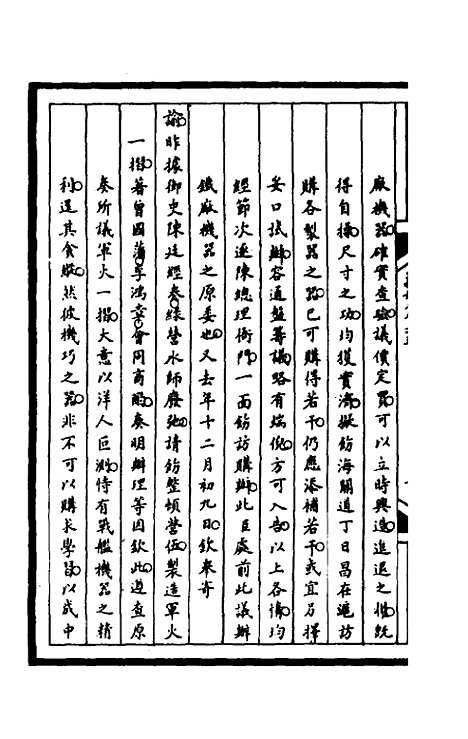 廠機器確實查驗議價定買可以立時興造進退之權既
得自操尺寸之功均獲實濟擬飭海關道丁日昌在滬訪
購各製器之器已可購得若干仍應添補若干或宜另擇
妥口試辦容通盤籌議略有端倪方可入告以上各情均
經節次遞陳總理衙門一面飭訪購辦此臣處前此議辦
鐵廠機器之原委也又去年十二月初九日欽奉寄
諭昨據御史陳廷經奏綠營水師廢弛請飭整頓營伍製造軍火
一摺著曾國藩李鴻章會同商酌奏明辦理等因欽此遵查原
奏所議軍火一摺大意以洋人叵測恃有戰艦機器之精
利逞其貪縱然彼機巧之器非不可以購求學習以成中